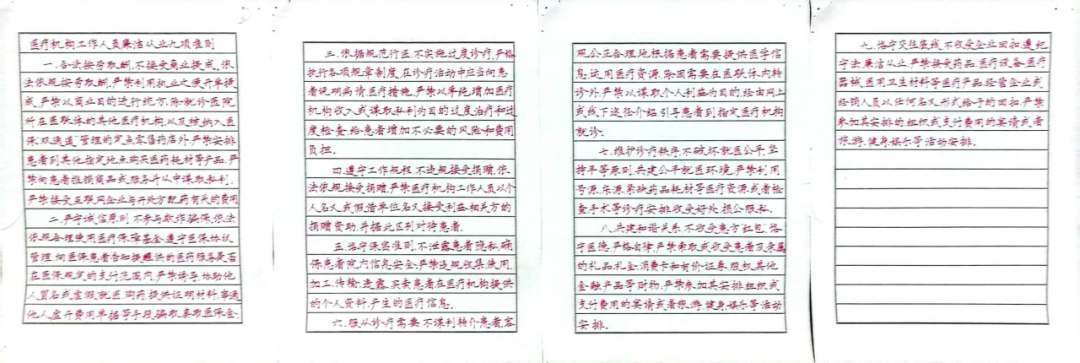 医疗机构工作人员廉洁从业九项准则
一、合法按劳取酬,不接受商业提成。依
法依规按劳取酬。严禁利用执业之便开单提
成;严禁以商业目的进行统方;除就诊医院
所在医联体的其他医疗机构,以及被纳入医
保"双通道"管理的定点零售药店外,严禁安排
患者到其他指定地点购买医药耗材等产品;严
禁向患者推销商品或服务并从中谋取私利;
严禁接受互联网企业与开处方配药有关的费用
二、严守诚信原则,不参与欺诈骗保。依法
依规合理使用医疗保障基金,遵守医保协议
管理,向医保患者告知提供的医药服务是否
在医保规定的支付范围内。严禁诱导、协助他
人冒名或虚假就医、购药、提供证明材料、串通
他人虚开费用单据等手段骗取、套取医保金
三、依据规范行医,不实施过度诊疗。严格
执行各项规章制度,在诊疗活动中应当向患
者说明病情、医疗措施。严禁以单纯增加医疗
机构收入或谋取私利为目的过度治疗和过
度检查,给患者增加不必要的风险和费用
负担。
四、遵守工作规程,不违规接受捐赠。依
法依规接受捐赠。严禁医疗机构工作人员以个
人名义,或假借单位名义接受利益相关方的
捐赠资助,并据此区别对待患者。
五、恪守保密准则,不泄露患者隐私。确
保患者院内信息安全。严禁违规收集、使用、
加工、传输、透露、买卖患者在医疗机构提供
的个人资料、产生的医疗信息。
六、服从诊疗需要,不谋利转介患者。客
观公正合理地根据患者需要提供医学信
息、运用医疗资源。除因需要在医联体内转
诊外,严禁以谋取个人利益为目的,经由网上
或线下途径介绍、引导患者到指定医疗机构
就诊。
七、维护诊疗秩序,不破坏就医公平。坚
持平等原则,共建公平就医环境。严禁利用
号源、床源、紧缺药品耗材等医疗资源或者检
查、手术等诊疗安排收受好处、损公肥私。
八、共建和谐关系,不收受患方红包。恪守
医德、严格自律。严禁索取或收受患者及亲属
的礼品、礼金、消费卡和有价证券、股权、其他
金融产品等财物;严禁参加其安排、组织或
支付费用的宴请或者旅游、健身、娱乐等活动
安排。
九、恪守交往底线,不收受企业回扣。遵纪
守法、廉洁从业。严禁接受药品、医疗设备、医疗
器械、医用卫生材料等医疗产品经营企业或
经销人员以任何名义形式给予的回扣;严禁
参加其安排的组织或支付费用的宴请或者
旅游、健身、娱乐等活动安排。